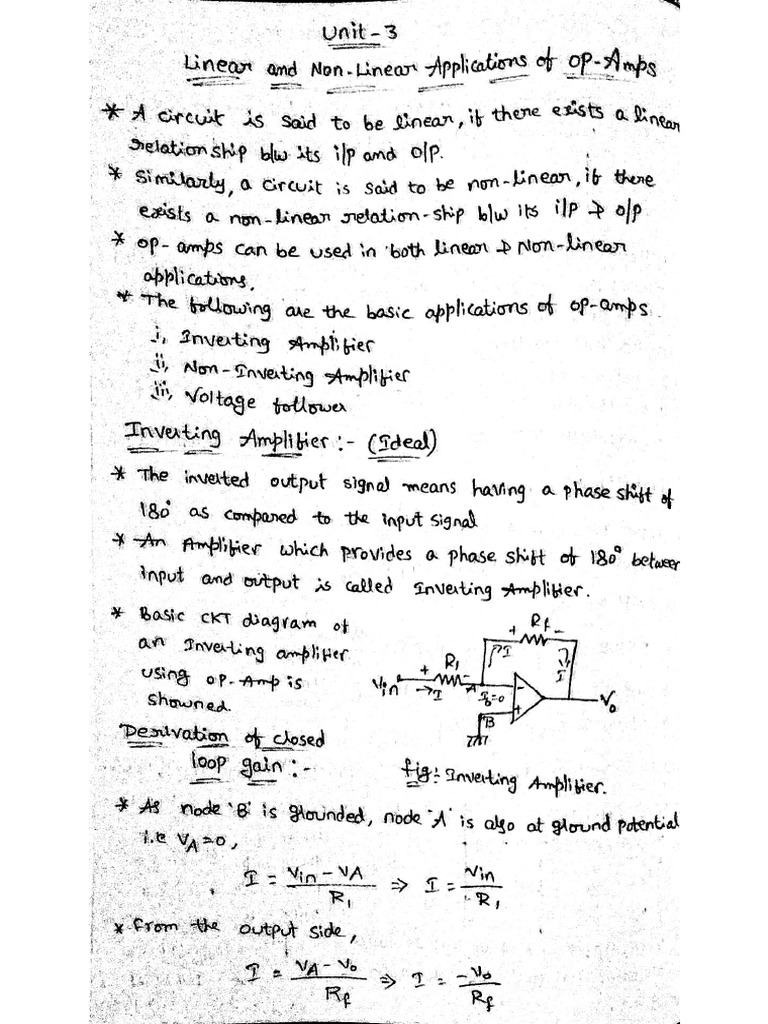 Unit-3
Linear and Non-Linear Applications of OP-Amps
* A circuit is said to be linear, if there exists a linear
relation ship b/w its i/p and o/p.
* Similarly, a circuit is said to be non-linear, if there
exists a non-linear relation-ship b/w its i/p & o/p
* op-amps can be used in both linear & Non-linear
applications.
* The following are the basic applications of op-amps.
i, Inverting Amplifier
ii, Non-Inverting Amplifier
iii, Voltage follower
Inverting Amplifier :- (Ideal)
* The inverted output signal means having a phase shift of
180° as compared to the input signal
* An Amplifier which provides a phase shift of 180° between
input and output is called Inverting Amplifier.
* Basic CKT diagram of
an Inverting amplifier
using op-Amp is
showned.
Rf
+ -
I I
R1
+ -
Vin → I A IB=0 - V0
B +
Derivation of closed
loop gain :-
fig: Inverting Amplifier.
* As node 'B' is grounded, node 'A' is also at ground potential
i.e VA=0,
I = Vin - VA / R1 ⇒ I = Vin / R1
* From the output side,
I = VA - V0 / Rf ⇒ I = -V0 / Rf